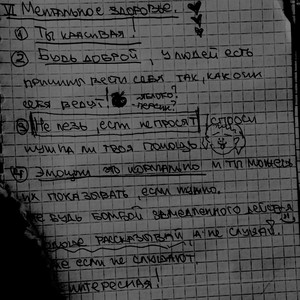 VI Ментальное здоровье.
① Ты красивая!
② Будь доброй, у людей есть
причины вести себя так, как они
себя ведут! яблоко?
персик?
③ Не лезь, если не просят! спроси
нужна ли твоя помощь.
④ Эмоции это нормально и ты можешь
их показывать, если нужно.
Не будь бомбой замедленного действия
рассказывай, а не слушай.
если не слушают.
интересная!